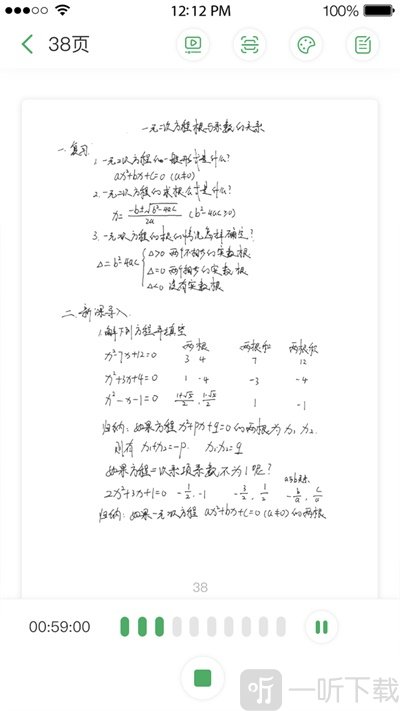 12:12 PM 100%
38页
一元二次方程根与系数的关系
一.复习
1.一元二次方程的一般形式是什么?
ax²+bx+c=0 (a≠0)
2.一元二次方程的求根公式是什么?
x=(-b±√(b²-4ac))/2a (b²-4ac≥0)
3.一元二次方程的根的情况怎样确定?
Δ=b²-4ac
Δ>0 两个不相等的实数根
Δ=0 两个相等的实数根
Δ<0 没有实数根
二.新课导入
1.解下列方程并填空
两根 两根和 两根积
x²-7x+12=0 3 4 7 12
x²+3x+4=0 1 -4 -3 -4
x²-x-1=0 (1+√5)/2, (1-√5)/2 1 -1
归纳:如果方程x²+px+q=0的两根为x₁ x₂.
则有 x₁+x₂=-p. x₁x₂=q
如果方程二次项系数不为1呢?
2x²+3x+1=0 -1/2, -1 -3/2, 1/2 -b/a, c/a
归纳:如果一元二次方程 ax²+bx+c=0 (a≠0)的两根
38
00:59:00
听 一听下载